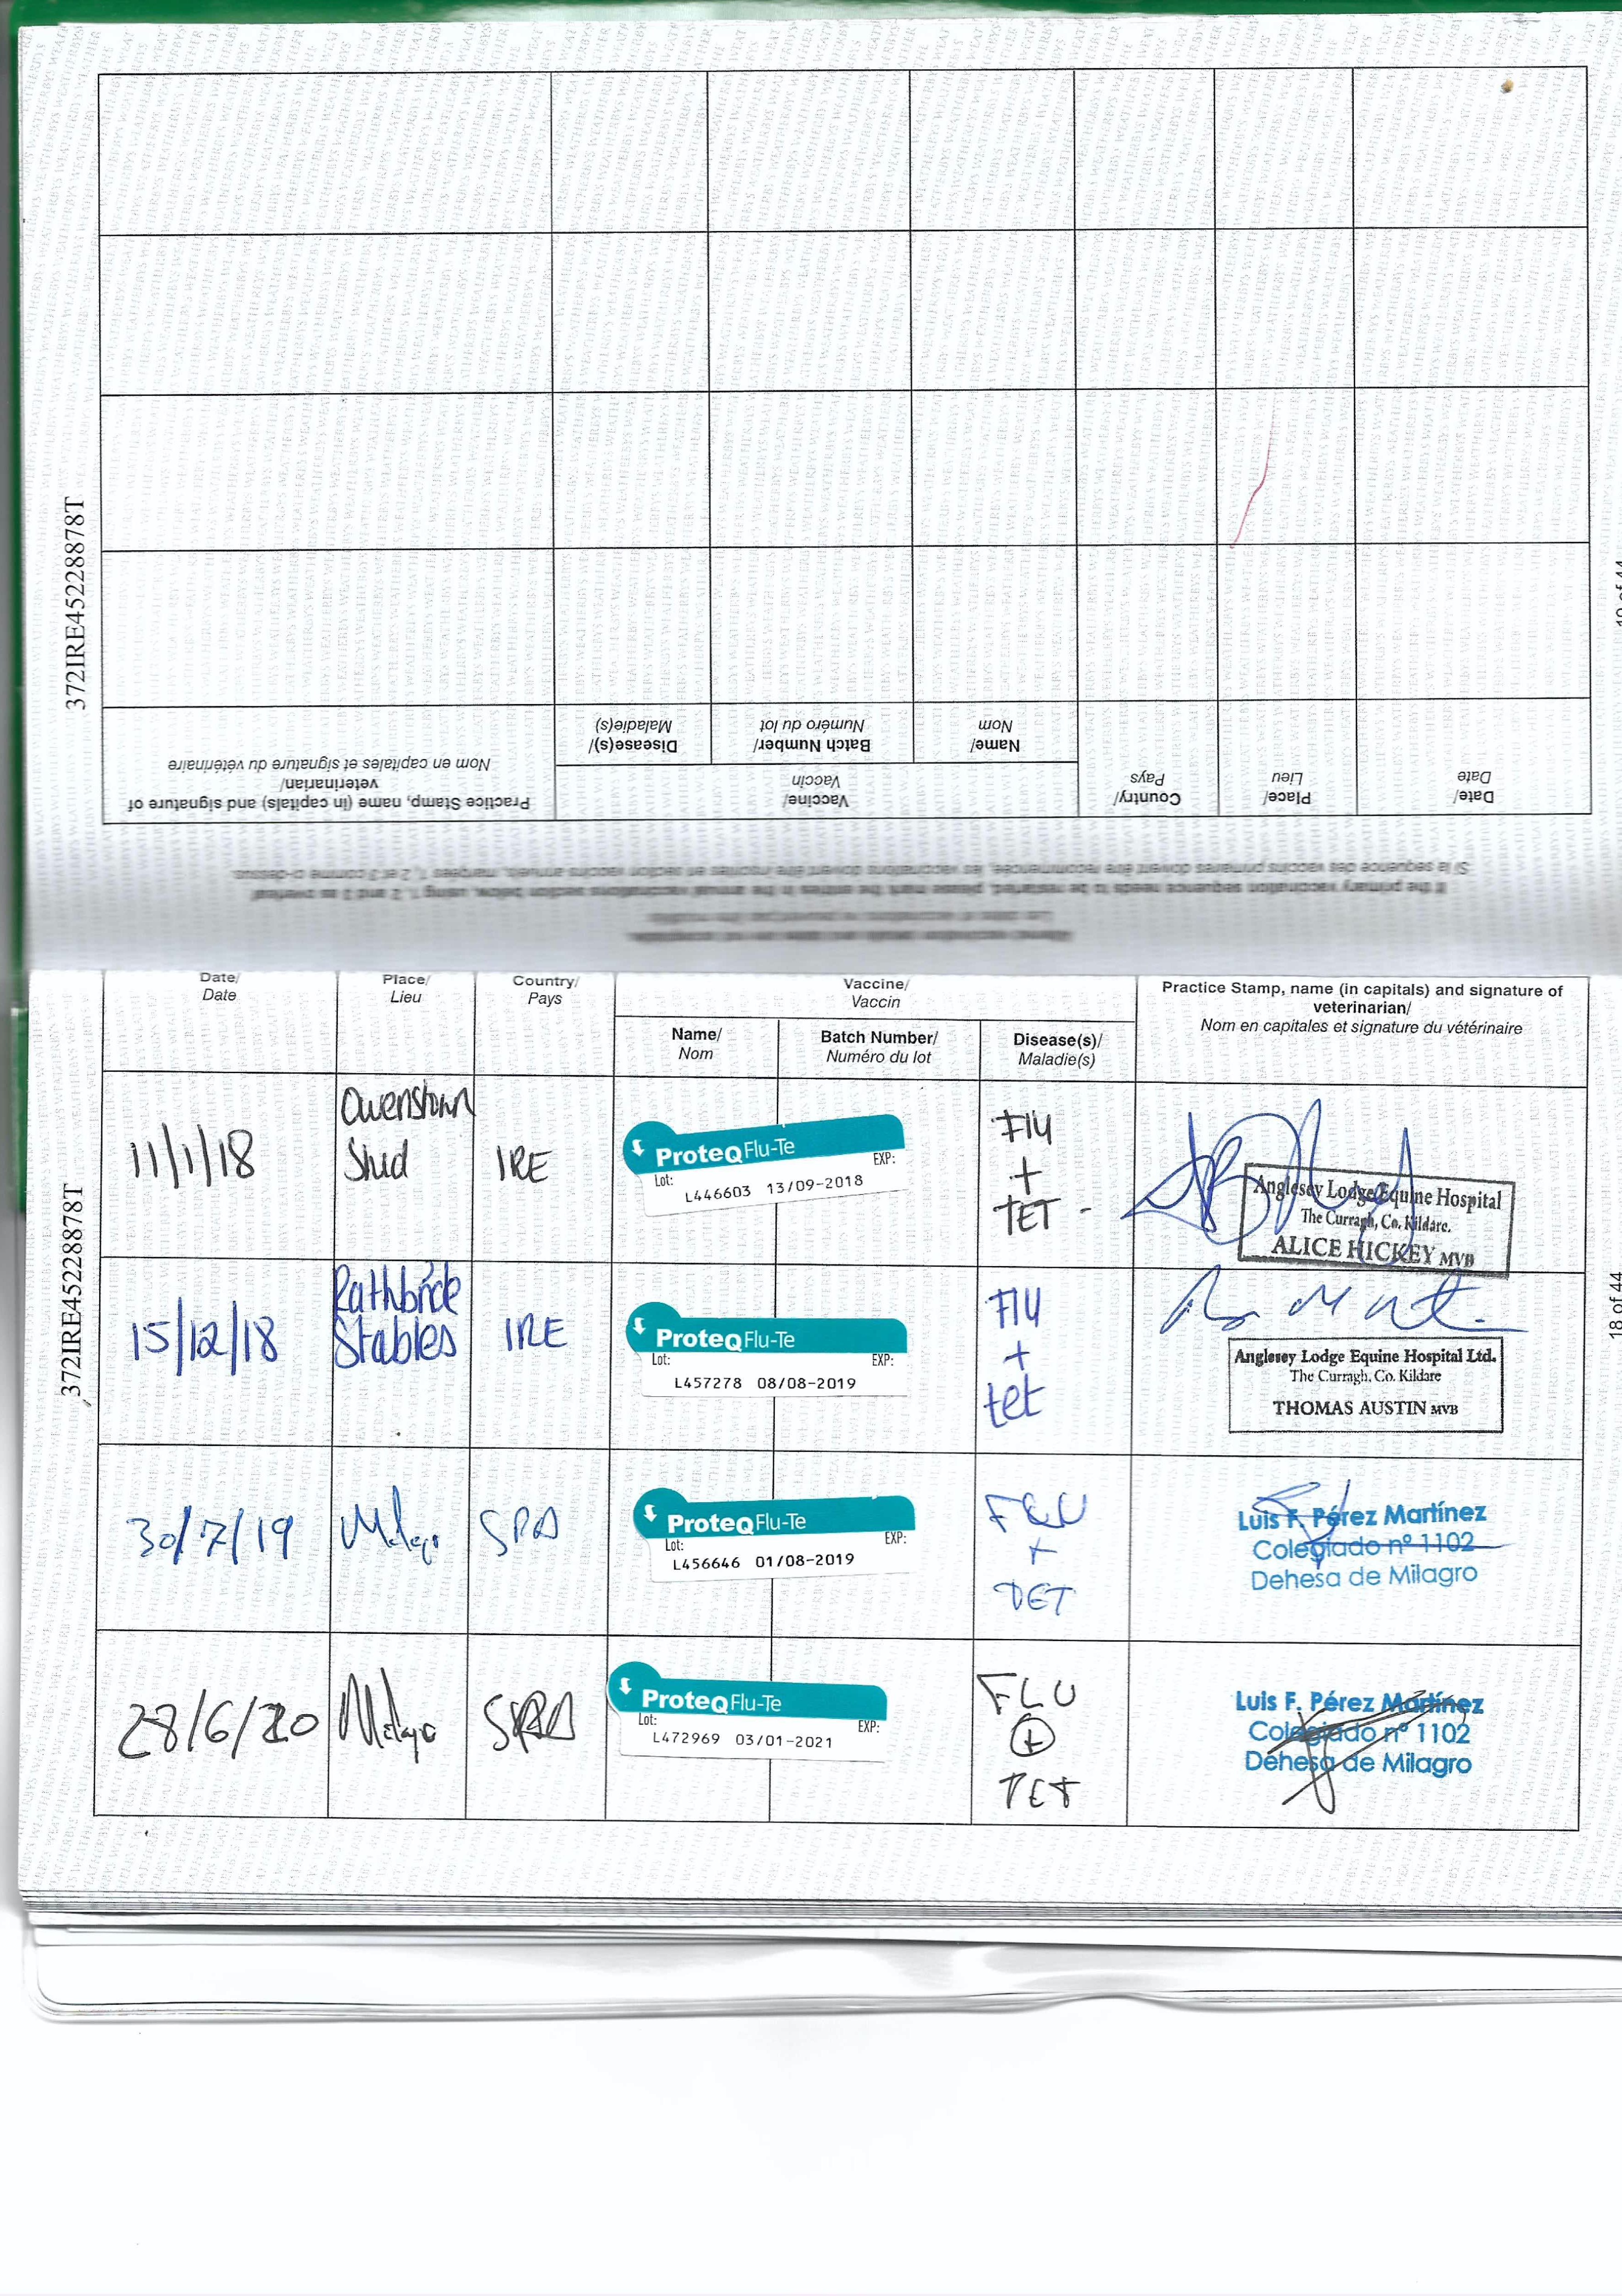 372IRE45228878T
Practice Stamp, name (in capitals) and signature of
veterinarian/
Nom en capitales et signature du vétérinaire
Vaccine/
Vaccin
Disease(s)/
Maladie(s)
Batch Number/
Numéro du lot
Name/
Nom
Country/
Pays
Place/
Lieu
Date/
Date
If the primary vaccination sequence needs to be restarted, please mark the entries in the annual vaccinations section below, using 1, 2 and 3 as overleaf
Si la séquence des vaccins primaires doivent être recommencées, les vaccinations doivent être inscrites en section vaccins annuels, marquées 1, 2 et 3 comme ci-dessus.
Date/
Date
Place/
Lieu
Country/
Pays
Vaccine/
Vaccin
Name/
Nom
Batch Number/
Numéro du lot
Disease(s)/
Maladie(s)
Practice Stamp, name (in capitals) and signature of
veterinarian/
Nom en capitales et signature du vétérinaire
372IRE45228878T
18 of 44
11/1/18
Owenstown
Stud
IRE
ProteqFlu-Te
Lot: EXP:
L446603 13/09-2018
Flu
+
TET -
Anglesey Lodge Equine Hospital
The Curragh, Co. Kildare.
ALICE HICKEY MVB
15/12/18
Rathbride
Stables
IRE
ProteqFlu-Te
Lot: EXP:
L457278 08/08-2019
Flu
+
tet
Anglesey Lodge Equine Hospital Ltd.
The Curragh. Co. Kildare
THOMAS AUSTIN MVB
30/7/19
SPA
ProteqFlu-Te
Lot: EXP:
L456646 01/08-2019
FLU
+
TET
Luis F. Pérez Martínez
Colegiado nº 1102
Dehesa de Milagro
28/6/20
SPA
ProteqFlu-Te
Lot: EXP:
L472969 03/01-2021
FLU
+
TET
Luis F. Pérez Martínez
Colegiado nº 1102
Dehesa de Milagro